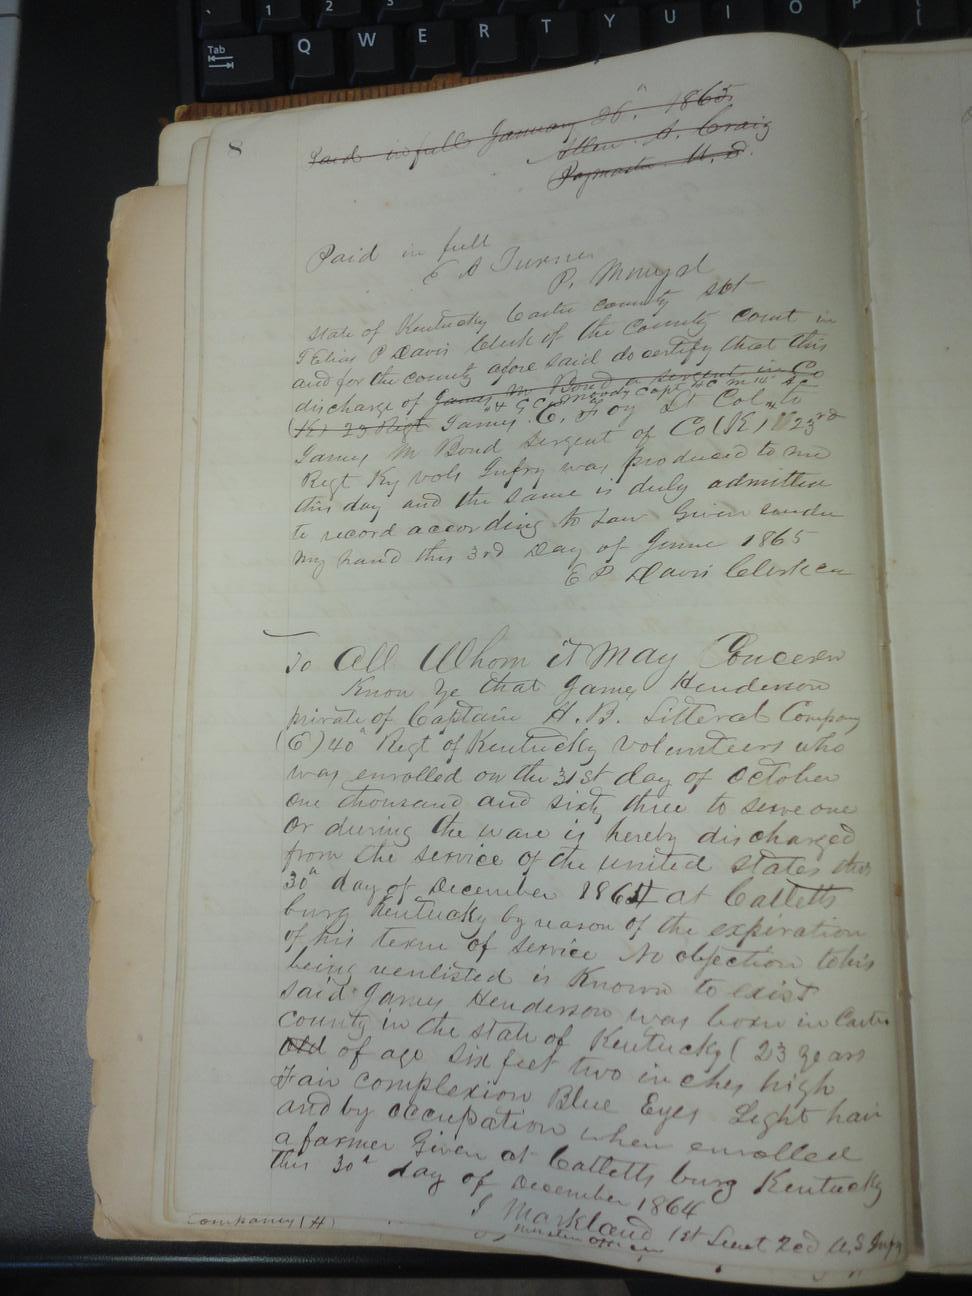 8
Paid in full January 26" 1863
Allen. A. Craig
Paymaster U. S.
Paid in full
E A Turner
P. M
State of Kentucky Carter County Sct
I Elias P Davis Clerk of the County Court in
and for the county afore said do certify that this
discharge of James M Bond a Sergent in Co
(K) 23 Regt James C. Foy Lt Col to
James M Bond Sergent of Co (K) 23rd
Regt Ky vols Infry was produced to me
this day and the same is duly admitted
to record according to Law Given under
my hand this 3rd Day of June 1865
E P Davis Clerk
To All Whom it May Concern
Know Ye that James Henderson
private of Captain H. B. Litteral Company
(E) 40" Regt of Kentucky Volunteers who
was enrolled on the 31st day of October
one thousand and sixty three to serve one
or during the ware is hereby discharged
from the service of the united states this
30" day of December 1864 at Catletts
burg Kentucky by reason of the expiration
of his term of service No objection to his
being reenlisted is Known to exist
said James Henderson was born in Carter
county in the state of Kentucky (23 years
old of age six feet two inches high
Fair complexion Blue Eyes Light hair
and by occupation when enrolled
a farmer Given at Catletts burg Kentucky
this 30" day of December 1864
J Markland 1st Lieut 2ed U,S Infry
Mustern officer
Company (H)
Tab
Q W E R T Y U I O P